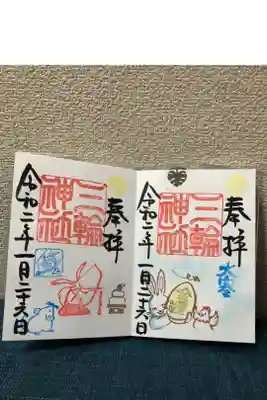 奉拝
大寒
三輪
神社
令和二年一月二十六日
奉拝
三輪
神社
令和二年一月二十六日